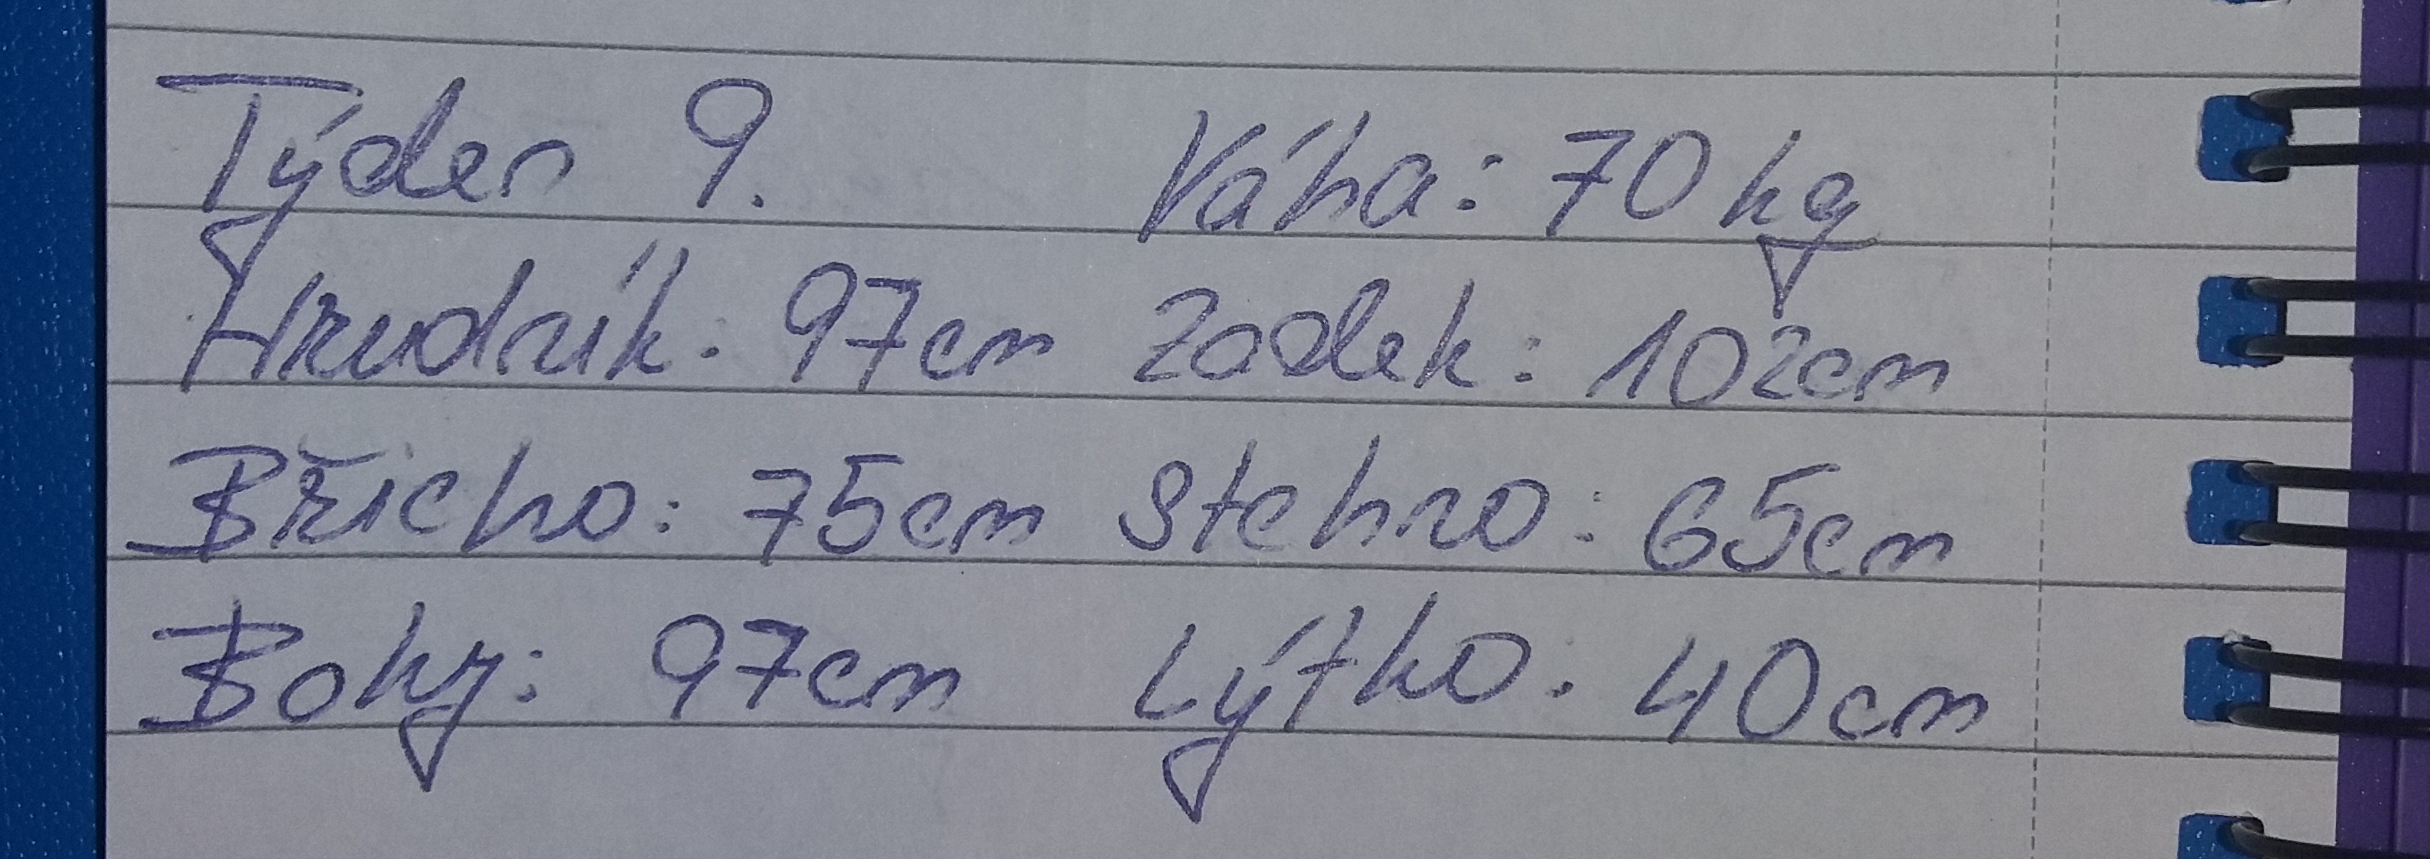 Týden 9. Váha: 70kg
Hrudník: 97cm Zadek: 102cm
Břicho: 75cm Stehno: 65cm
Boky: 97cm Lýtko: 40cm